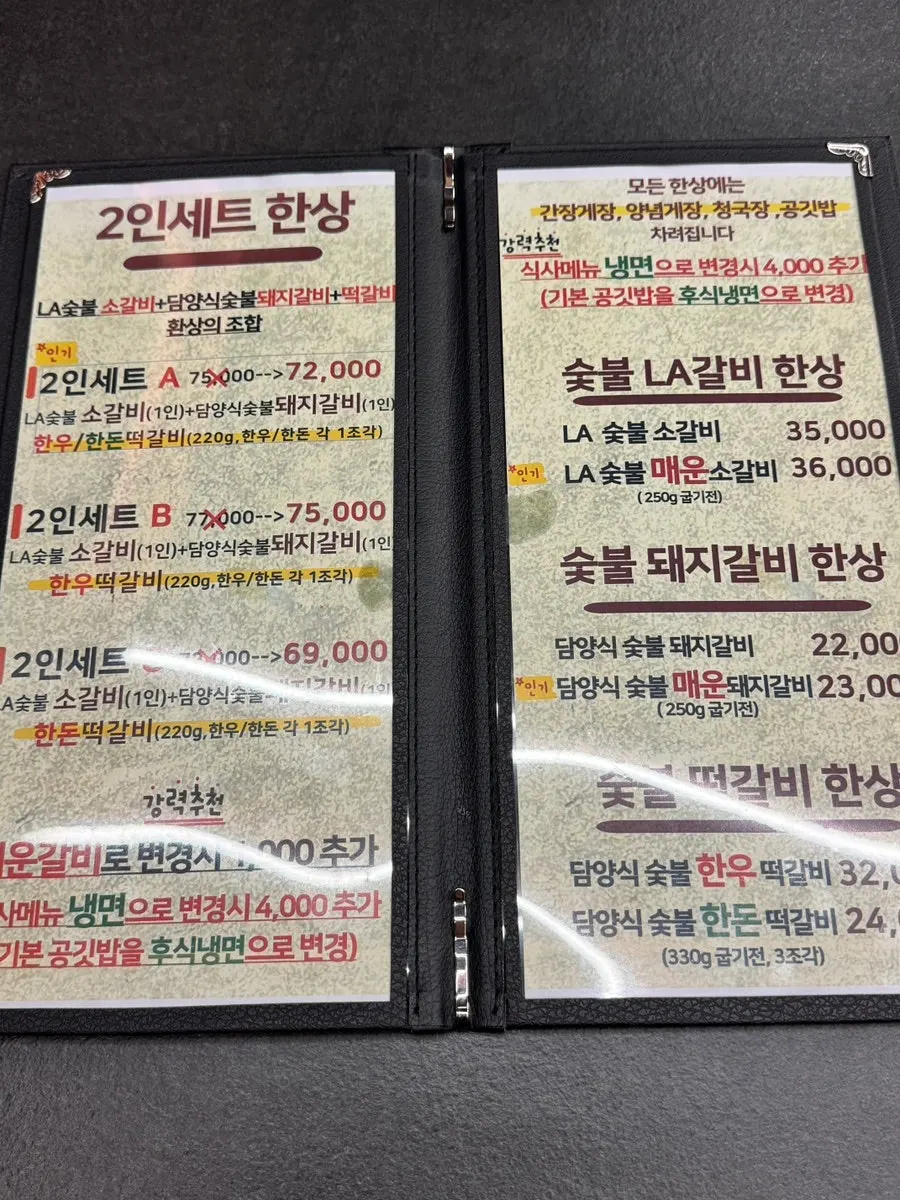 2인세트 한상
LA숯불 소갈비+담양식숯불돼지갈비+떡갈비
환상의 조합
인기
2인세트 A 75,000-->72,000
LA숯불 소갈비(1인)+담양식숯불돼지갈비(1인)
한우/한돈떡갈비(220g,한우/한돈 각 1조각)
2인세트 B 77,000-->75,000
LA숯불 소갈비(1인)+담양식숯불돼지갈비(1인
한우떡갈비(220g,한우/한돈 각 1조각)
2인세트 -->69,000
LA숯불 소갈비(1인)+담양식숯불돼지갈비(1인
한돈떡갈비(220g,한우/한돈 각 1조각)
강력추천
운갈비로 변경시 1,000 추가
사메뉴 냉면으로 변경시 4,000 추가
기본 공깃밥을 후식냉면으로 변경)
모든 한상에는
간장게장, 양념게장, 청국장 ,공깃밥
차려집니다
강력추천
식사메뉴 냉면으로 변경시 4,000 추가
(기본 공깃밥을 후식냉면으로 변경)
숯불 LA갈비 한상
LA 숯불 소갈비 35,000
인기 LA 숯불 매운소갈비 36,000
( 250g 굽기전)
숯불 돼지갈비 한상
담양식 숯불 돼지갈비 22,00
인기 담양식 숯불 매운돼지갈비 23,00
( 250g 굽기전)
숯불 떡갈비 한상
담양식 숯불 한우 떡갈비 32,
담양식 숯불 한돈 떡갈비 24,
(330g 굽기전, 3조각)